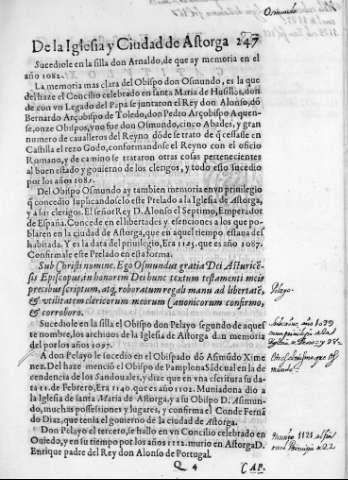 Osmundo
De la Iglesia y Ciudad de Astorga 247
Sucediole en la silla don Arnaldo, de que ay memoria en el
año 1082.
La memoria mas clara del Obispo don Osmundo, es la que
del haze el Concilio celebrado en santa Maria de Husillos, don
de con vn Legado del Papa se juntaron el Rey don Alonso, dó
Bernardo Arçobispo de Toledo, don Pedro Arçobispo Aquen-
se, onze Obispos, y vno fue don Osmundo, cinco Abades, y gran
numero de caualleros del Reyno dóde se trato de q̃ cessasse en
Castilla el rezo Godo, conformandose el Reyno con el oficio
Romano, y de camino se trataron otras cosas pertenecientes
al buen estado y gouierno de los clerigos, y todo esto sucedio
por los años 1087.
Del Obispo Osmundo ay tambien memoria en vn priuilegio
q̃ concedio suplicandoselo este Prelado a la Iglesia de Astorga,
y a sus clerigos. El señor Rey D. Alonso el Septimo, Emperador
de España. Concede en el libertades y essenciones a los que po-
blaren en la ciudad de Astorga, que en aquel tiempo estaua des
habitada. Y es la data del priuilegio, Era 1125. que es año 1087.
Confirmale este Prelado en esta forma.
Sub Christi nomine. Ego Osmundus gratia Dei Asturicē-
sis Episcopus, in honorem Dei hunc textum testamenti meis
precibus scriptum, atq; roboratum regali manu ad libertatē,
& vtilitatem clericorum meorum Canonicorum confirmo,
& corroboro.
Sucediole en la silla el Obispo don Pelayo segundo de aques
te nombre, los archiuos de la Iglesia de Astorga dan memoria
del por los años 1097.
A don Pelayo le sucedio en el Obispado dó Asimúdo Xime
nez. Del haze menció el Obispo de Pamplona Sádoual en la de
cendencia de los Sandouales, y dize que en vna escritura su da-
ta 11. de Febrero, Era 1140. que es año 1102. Muniadona dio a
la Iglesia de santa Maria de Astorga, y a su Obispo D. Asimun-
do, muchas possessiones y lugares, y confirma el Conde Fernā
do Diaz, que tenia el gouierno de la ciudad de Astorga.
Don Pelayo tercero, se hallo en vn Concilio celebrado en
Ouiedo, y en su tiempo por los años 1112. murio en Astorga D.
Enrique padre del Rey don Alonso de Portugal.
Q 4
CAP.
Pelayo.